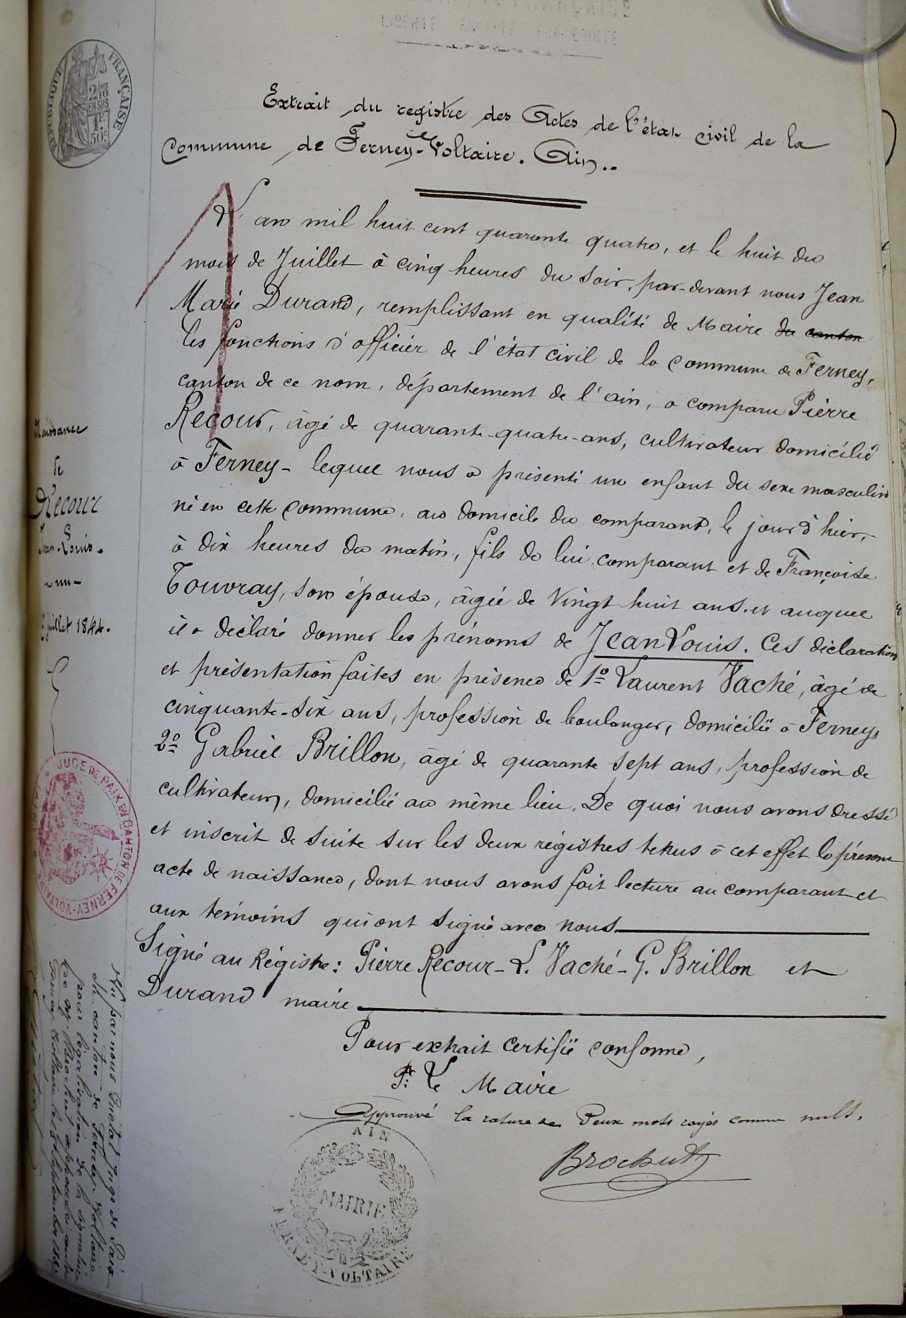 RÉPUBLIQUE FRANÇAISE
2/10 EN SUS
1F 50c
Extrait du registre des Actes de l'état civil de la
Commune de Ferney-Voltaire. Ain..
L'an mil huit cent quarante quatre, et le huit du
mois de Juillet à cinq heures du soir, par-devant nous Jean
Marie Durand, remplissant en qualité de Maire du canton
les fonctions d'officier de l'état civil de la commune de Ferney,
canton de ce nom, département de l'ain, a comparu Pierre
Recour, âgé de quarante-quatre-ans, cultivateur domicilié
à Ferney- lequel nous a présenté un enfant du sexe masculin
né en cette commune, au domicile du comparant, le jour d'hier,
à dix heures du matin, fils de lui comparant et de Françoise
Touvray, son épouse, âgée de Vingt huit ans, et auquel
il a declaré donner les prénoms de Jean Louis. Ces déclaration
et présentation faites en présence de 1º Laurent Vaché, âgé de
cinquante-six ans, profession de boulanger, domicilié à Ferney,
2º Gabriel Brillon, âgé de quarante sept ans, profession de
cultivateur, domicilié au même lieu. De quoi nous avons dressé
et inscrit de suite sur les deux régistres tenus à cet effet le présent
acte de naissance, dont nous avons fait lecture au comparant et
aux temoins qui ont signé avec nous
Signé au Régistre: Pierre Recour- L. Vaché- G. Brillon et
Durand maire
Pour extrait certifié conforme,
Pr. Le Maire
Approuvé la rature de Deux mots rayés comme nuls.
Brochut
AIN
MAIRIE
FERNEY-VOLTAIRE
Naissance
de
Recour
Jean-Louis.
juillet 1844.
JUGE DE PAIX DU CANTON DE FERNEY-VOLTAIRE
Vu par nous juge de Paix
du canton de Ferney-Voltaire
pour légalisation de la signature